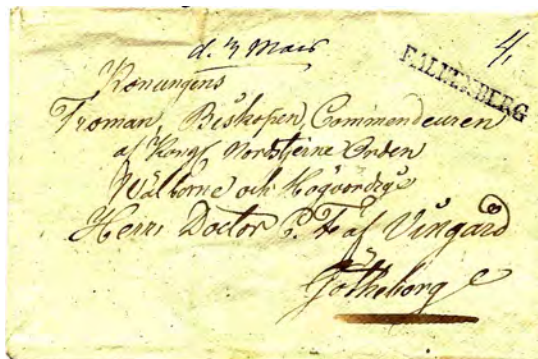 d. 3 Mars
4,
FALKENBERG
Konungens
Troman, Biskopen, Commendeuren
af Kongl Nordstjerne Orden
Wälborne och Högvördige
Herr Doctor C. F. af Wingård
Götheborg